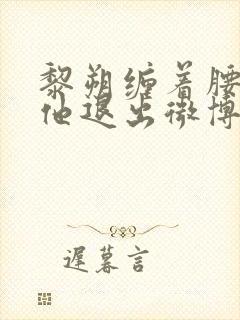 黎朔缠着腰
他退出微博
遲暮言